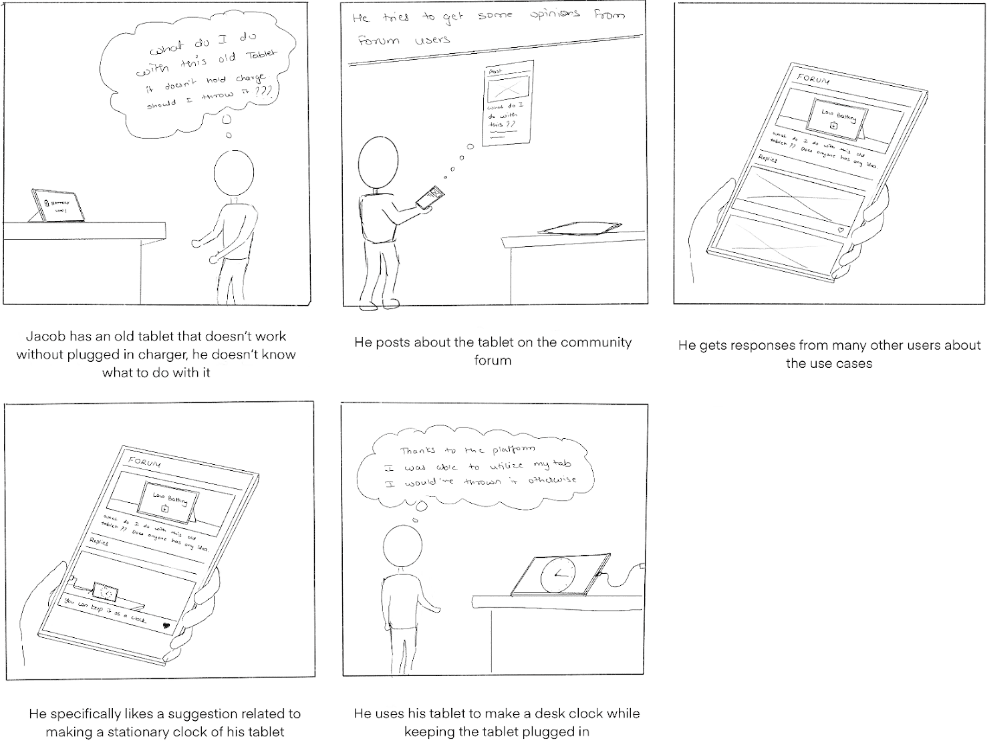 what do I do
with this old Tablet
it doesn't hold charge
should I throw it ???
Jacob has an old tablet that doesn't work
without plugged in charger, he doesn't know
what to do with it
He tries to get some opinions from
Forum users
Post
what do I
do with
this ??
He posts about the tablet on the community
forum
FORUM
Low Battery
what do I do with this old
tablet ?? Does anyone has any idea
Replies
He gets responses from many other users about
the use cases
FORUM
Low Battery
what do I do with this old
tablet ?? Does anyone has any idea
Replies
You can keep it as a clock
He specifically likes a suggestion related to
making a stationary clock of his tablet
Thanks to the platform
I was able to utilize my tab
I would've thrown it otherwise
He uses his tablet to make a desk clock while
keeping the tablet plugged in